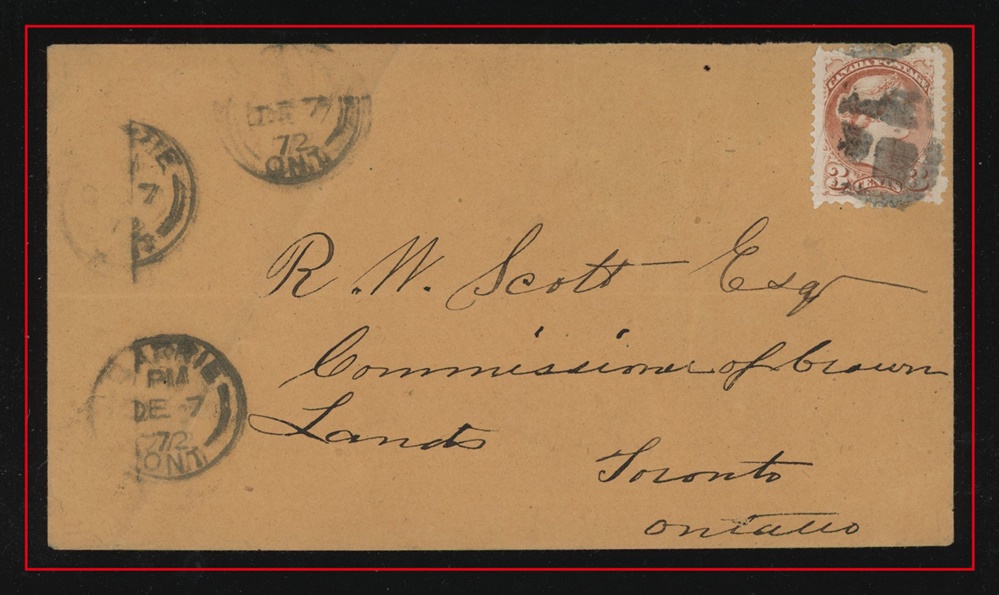 DE 7
72
ONT.
CANADA POSTAGE
3 CENTS 3
7
BARRIE
PM
DE 7
72
ONT.
R. W. Scott Esq
Commissioner of Crown
Lands
Toronto
Ontario